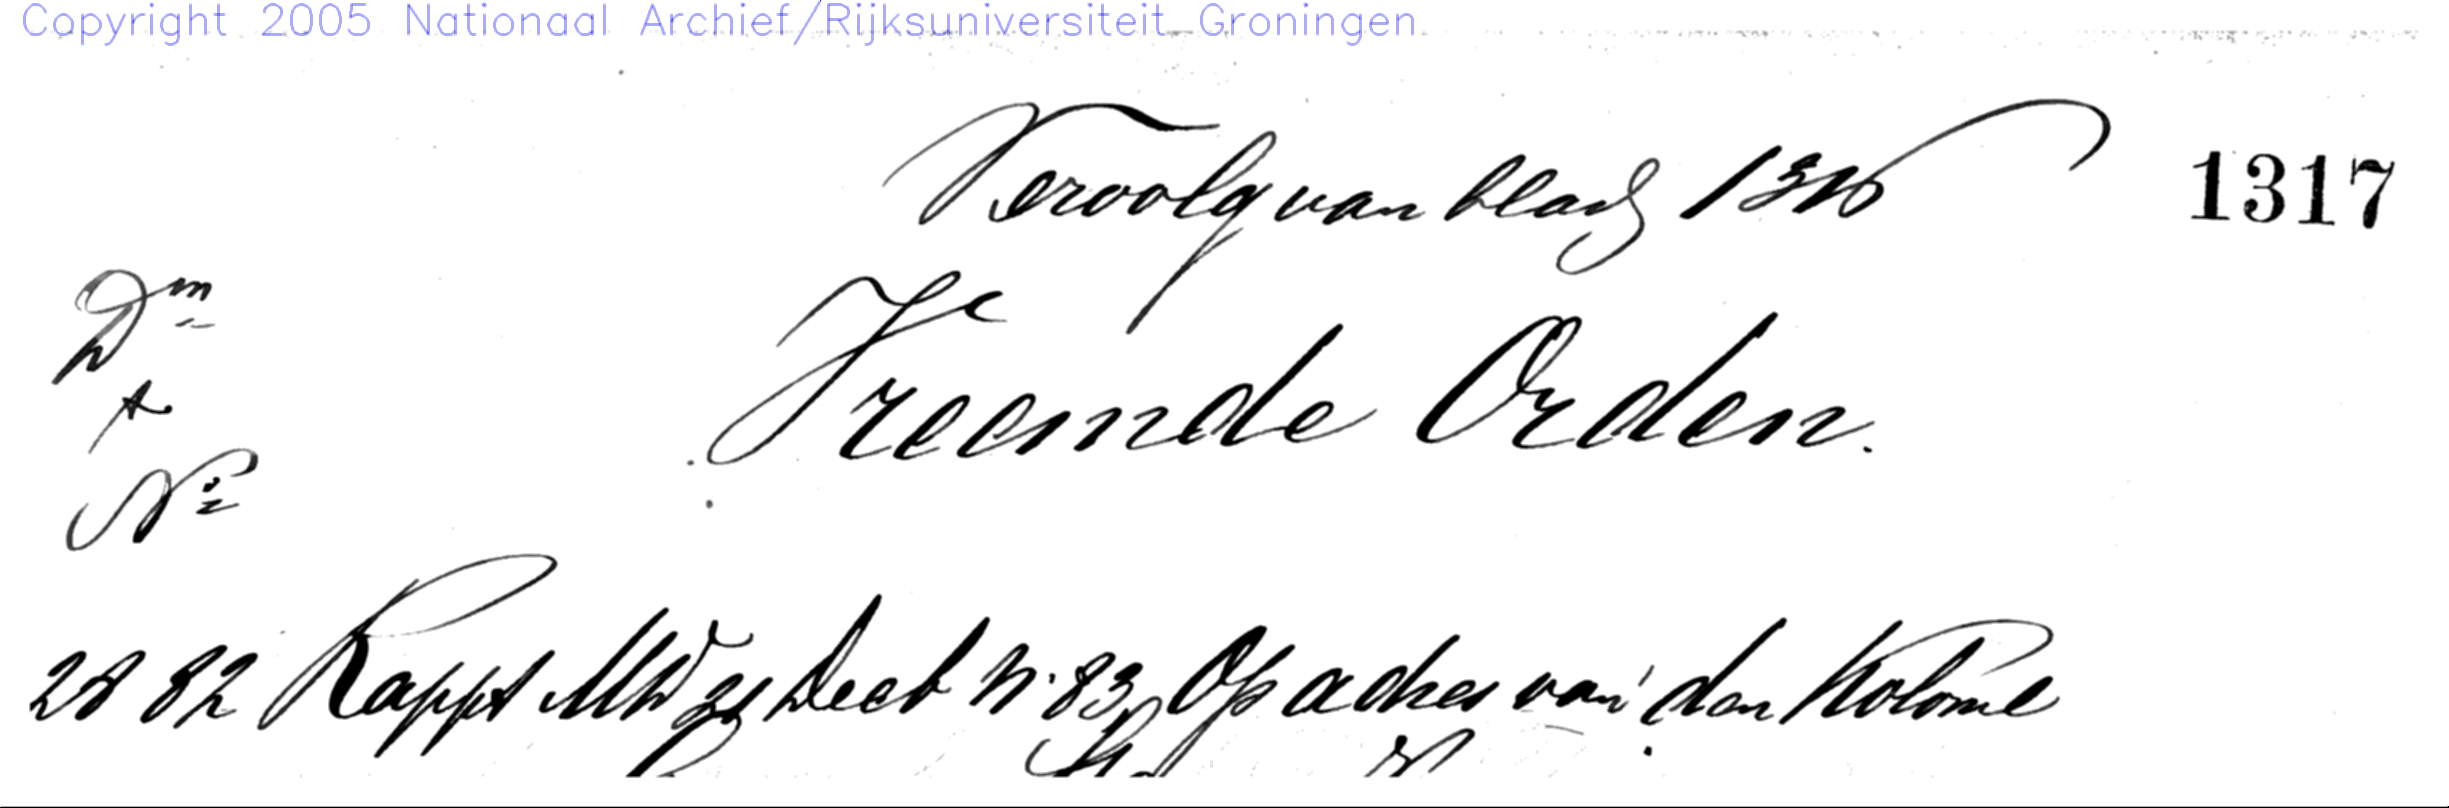 Copyright 2005 Nationaal Archief/Rijksuniversiteit Groningen
Vervolg van bladz 1316
1317
Dm
&
No
Vreemde Orden.
28 82 Rappt MvW 21 Decb N. 83 Op adres van den Kolonel